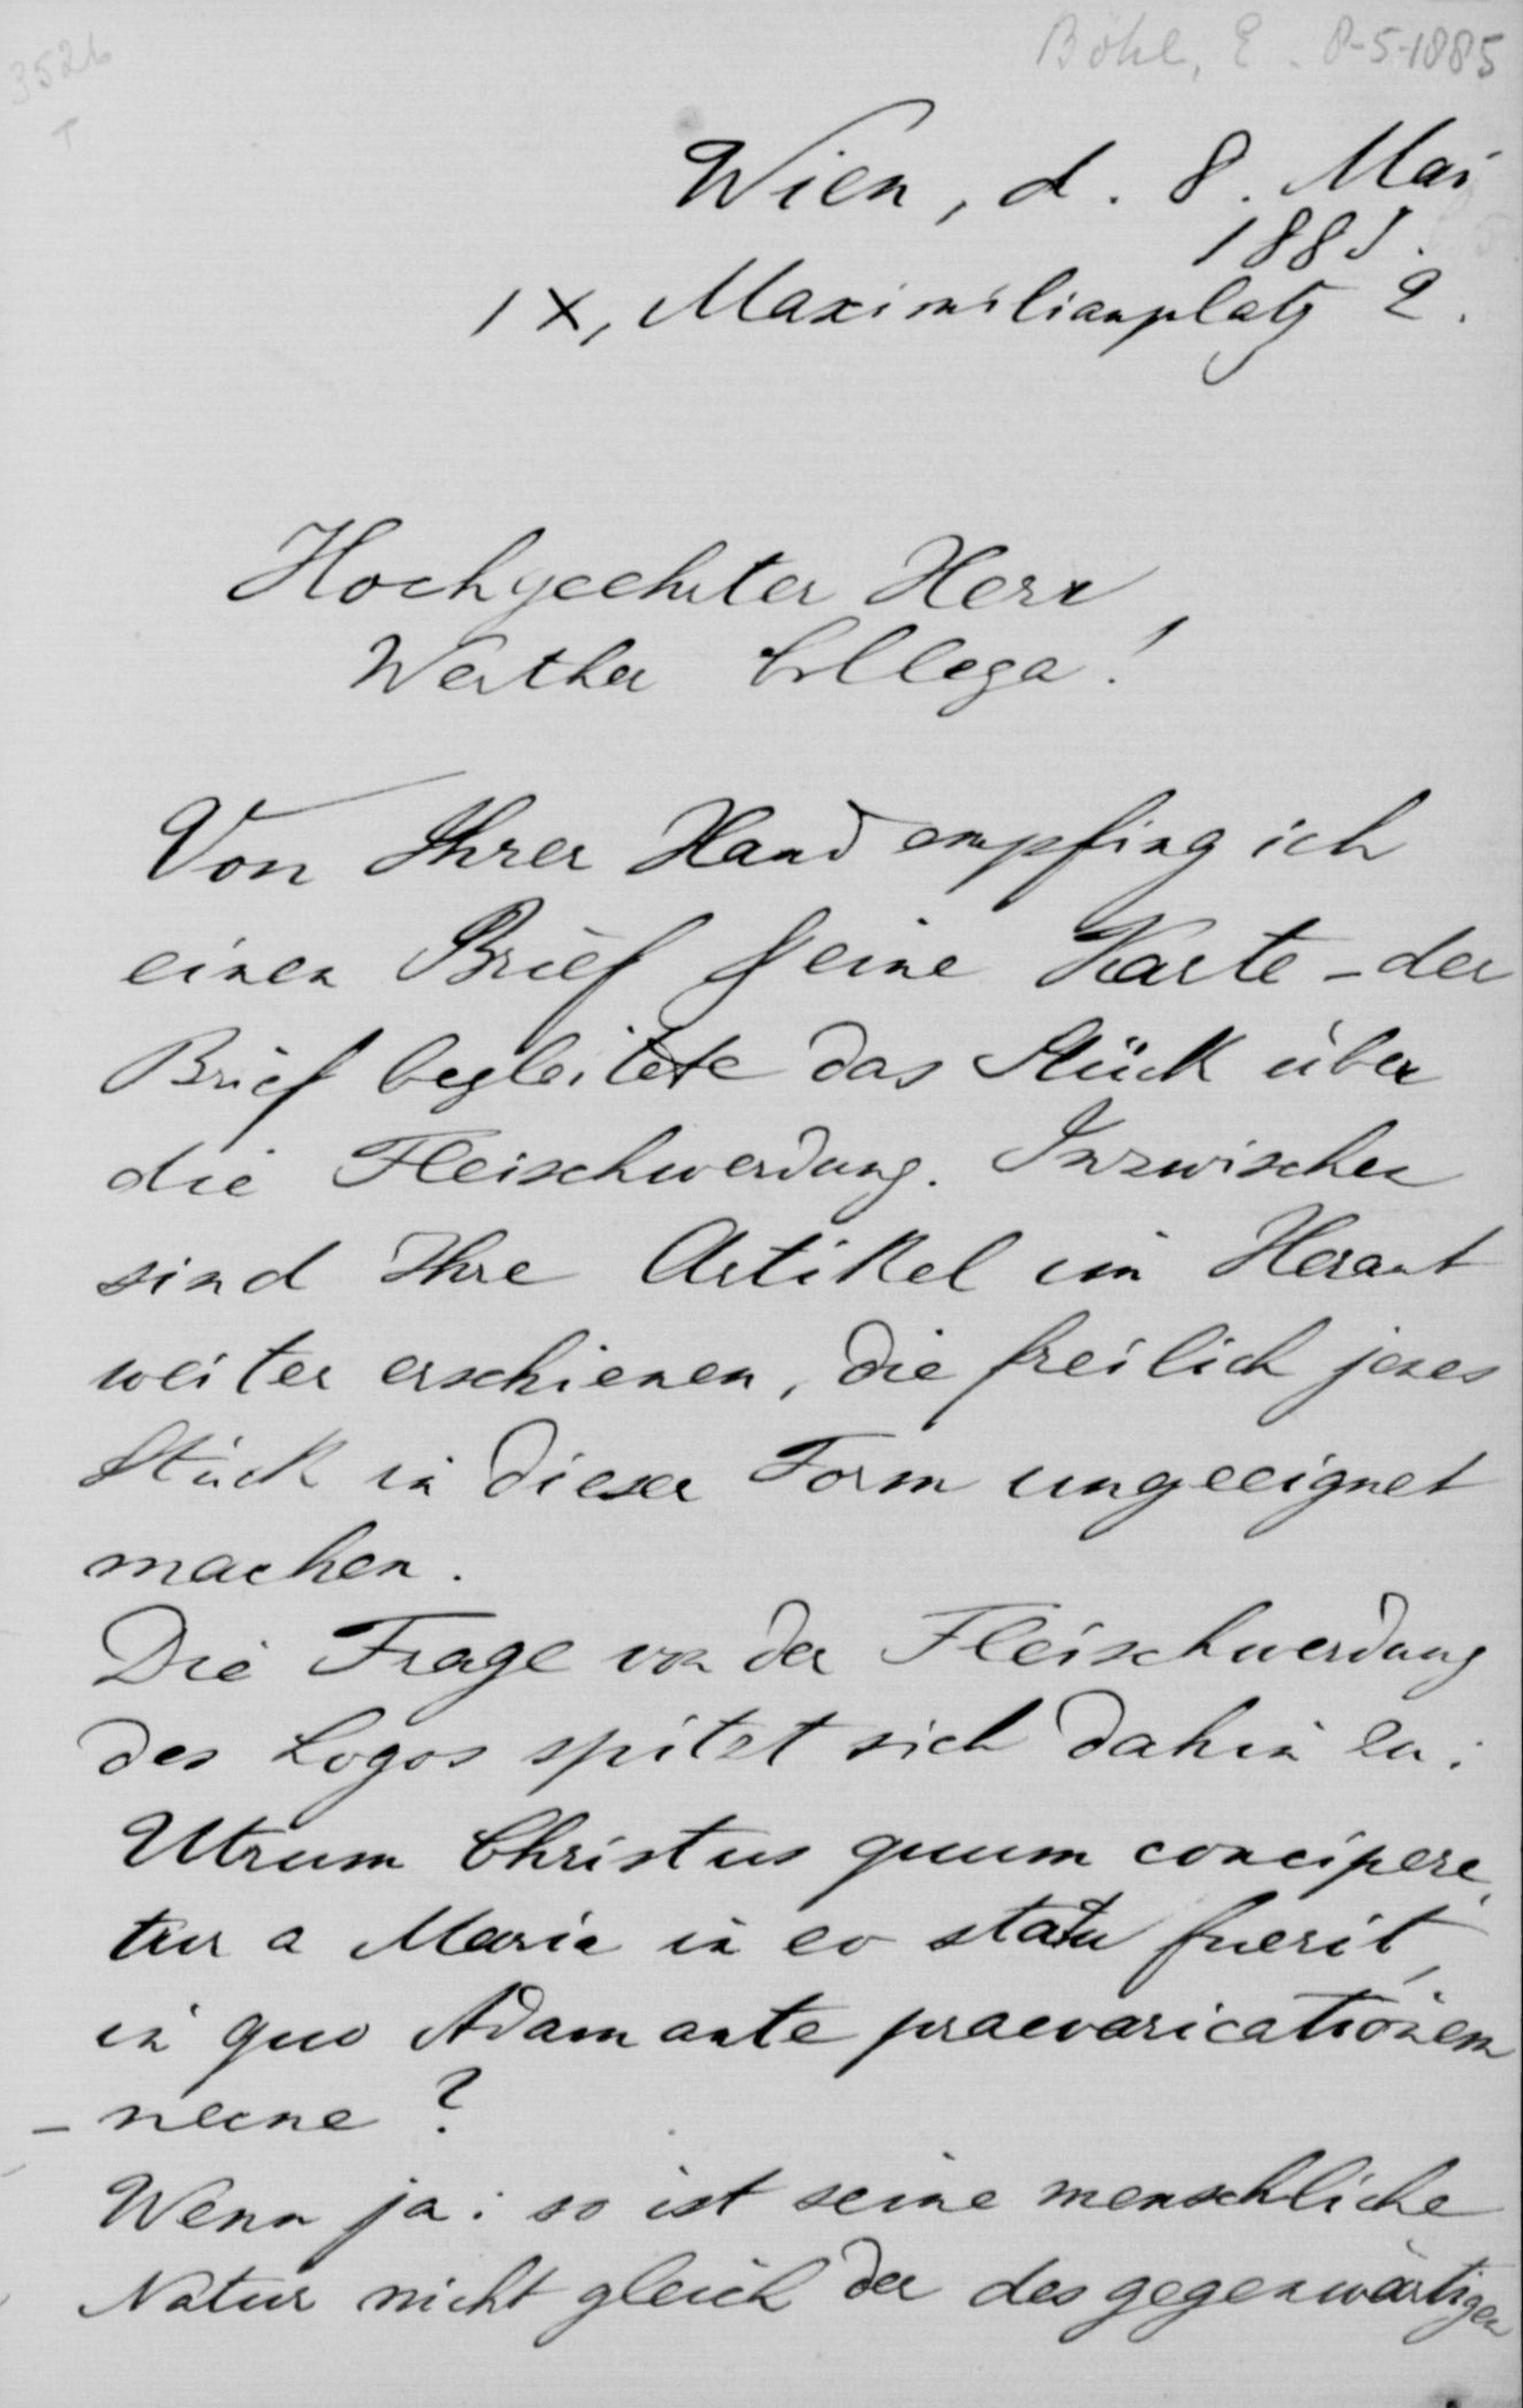 3526
T
Böhl, E. 8-5-1885
Wien, d. 8. Mai
1885.
IX, Maximilianplatz 2.
Hochgeehrter Herr,
Werther Collega!
Von Ihrer Hand empfing ich
einen Brief & eine Karte – der
Brief begleitete das Stück über
die Fleischwerdung. Inzwischen
sind Ihre Artikel im Heraut
weiter erschienen, die freilich jenes
Stück in dieser Form ungeeignet
machen.
Die Frage von der Fleischwerdung
des Logos spitzt sich dahin zu:
Utrum Christus quum concipere
tur a Maria in eo statu fuerit,
in quo Adam ante praevaricationem
– necne?
Wenn ja: so ist seine menschliche
Natur nicht gleich der des gegenwärtigen